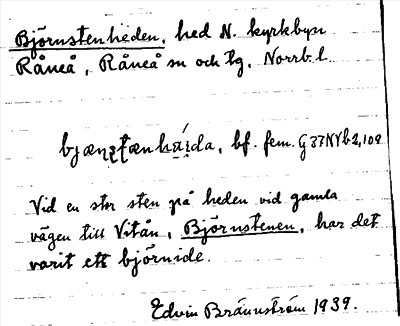 Björnstenheden, hed N. kyrkbyn
Råneå, Råneå sn och tg, Norrb. l.
bf. fem. G 37 NYb 2, 109
Vid en stor sten på heden vid gamla
vägen till Vitån, Björnstenen, har det
varit ett björnide.
Edvin Brännström 1939.